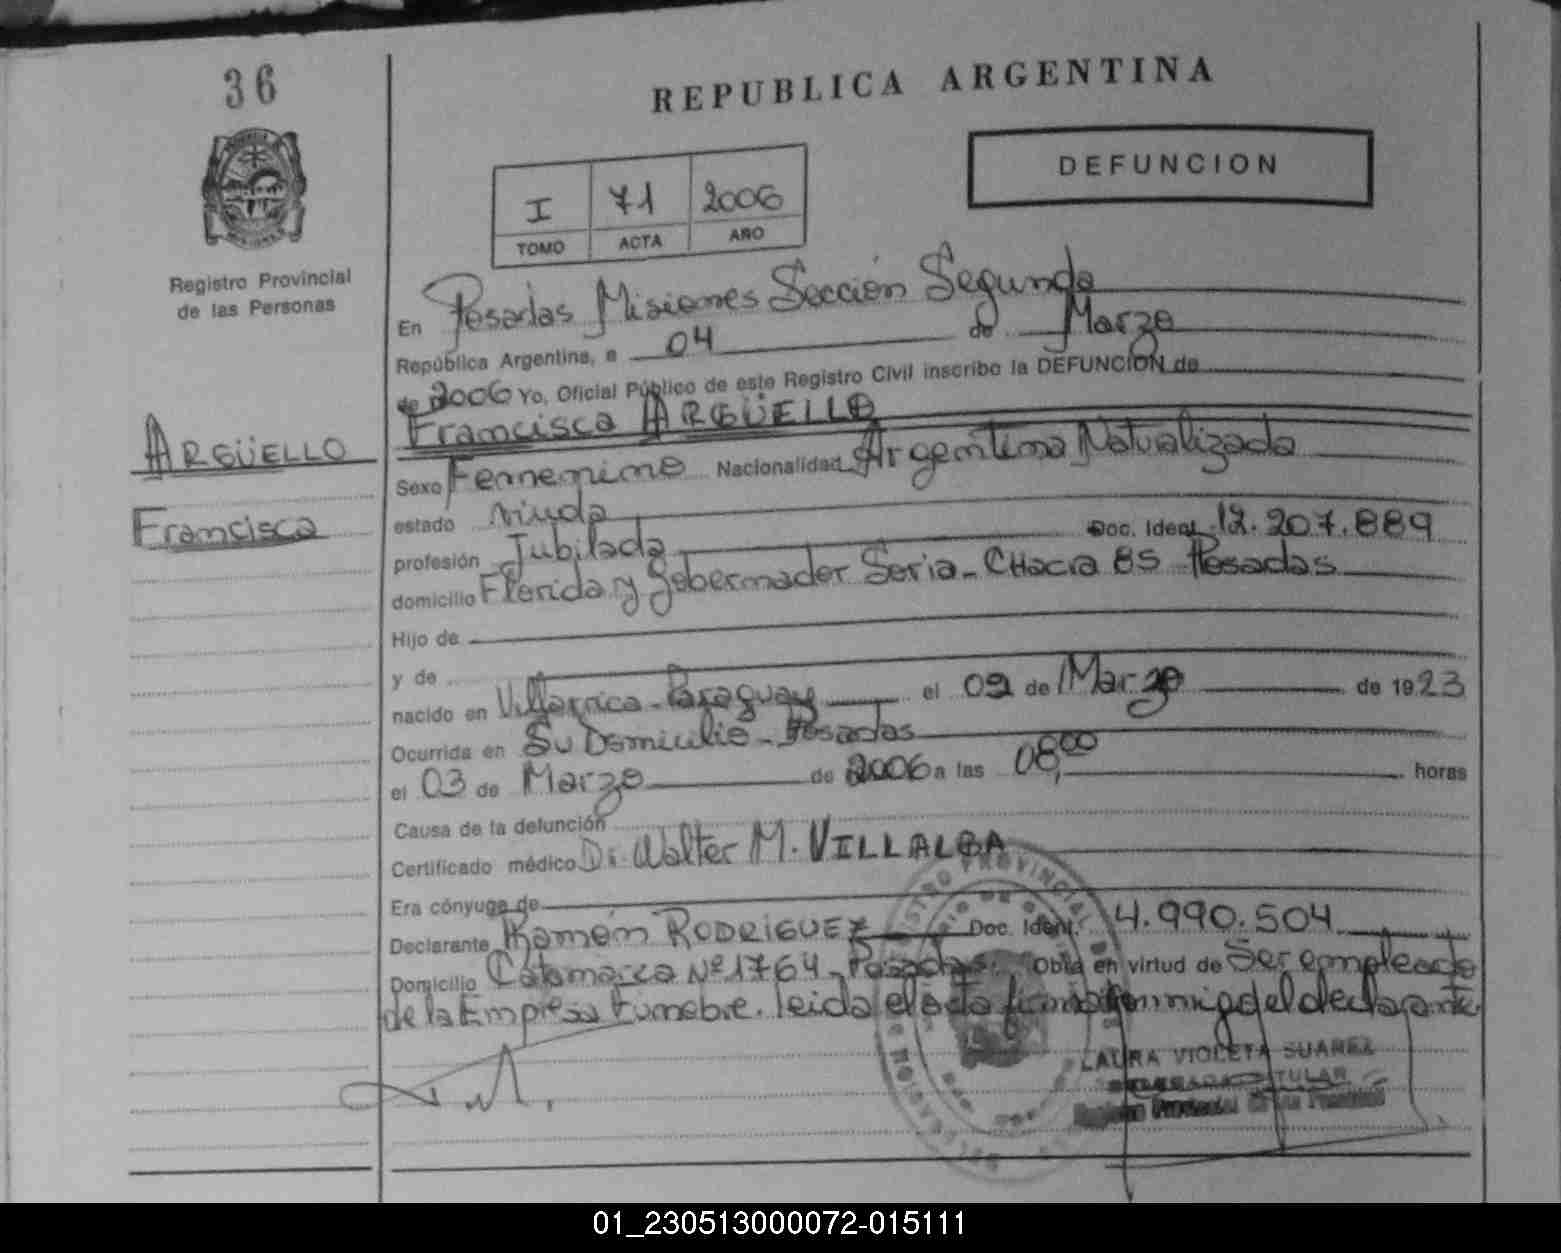 36
REPUBLICA ARGENTINA
DEFUNCION
I 71 2006
TOMO ACTA AÑO
Registro Provincial
de las Personas
En Posadas Misiones Sección Segunda
República Argentina, a 04 de Marzo
de 2006 Yo, Oficial Público de este Registro Civil inscribo la DEFUNCION de
Francisca ARGÜELLO
ARGÜELLO
Francisca
Sexo Femenino Nacionalidad Argentina Naturalizada
estado viuda
profesión Jubilada Doc. Ident. 12.207.889
domicilio Florida y Gobernador Soria - CHacra 85 Posadas
Hijo de
y de
nacido en Villarrica - Paraguay el 09 de Marzo de 1923
Ocurrida en Su Domicilio - Posadas
el 03 de Marzo de 2006 a las 08,00 horas
Causa de la defunción
Certificado médico Dr. Walter M. VILLALBA
Era cónyuge de
Declarante Ramón RODRIGUEZ Doc. Ident. 4.990.504
Domicilio Catamarca Nº 1764 - Posadas. Obra en virtud de Ser empleado
de la Empresa Fúnebre. leida el acta firma del declarante
LAURA VIOLETA SUAREZ
TITULAR
Registro Provincial de las Personas
01_230513000072-015111